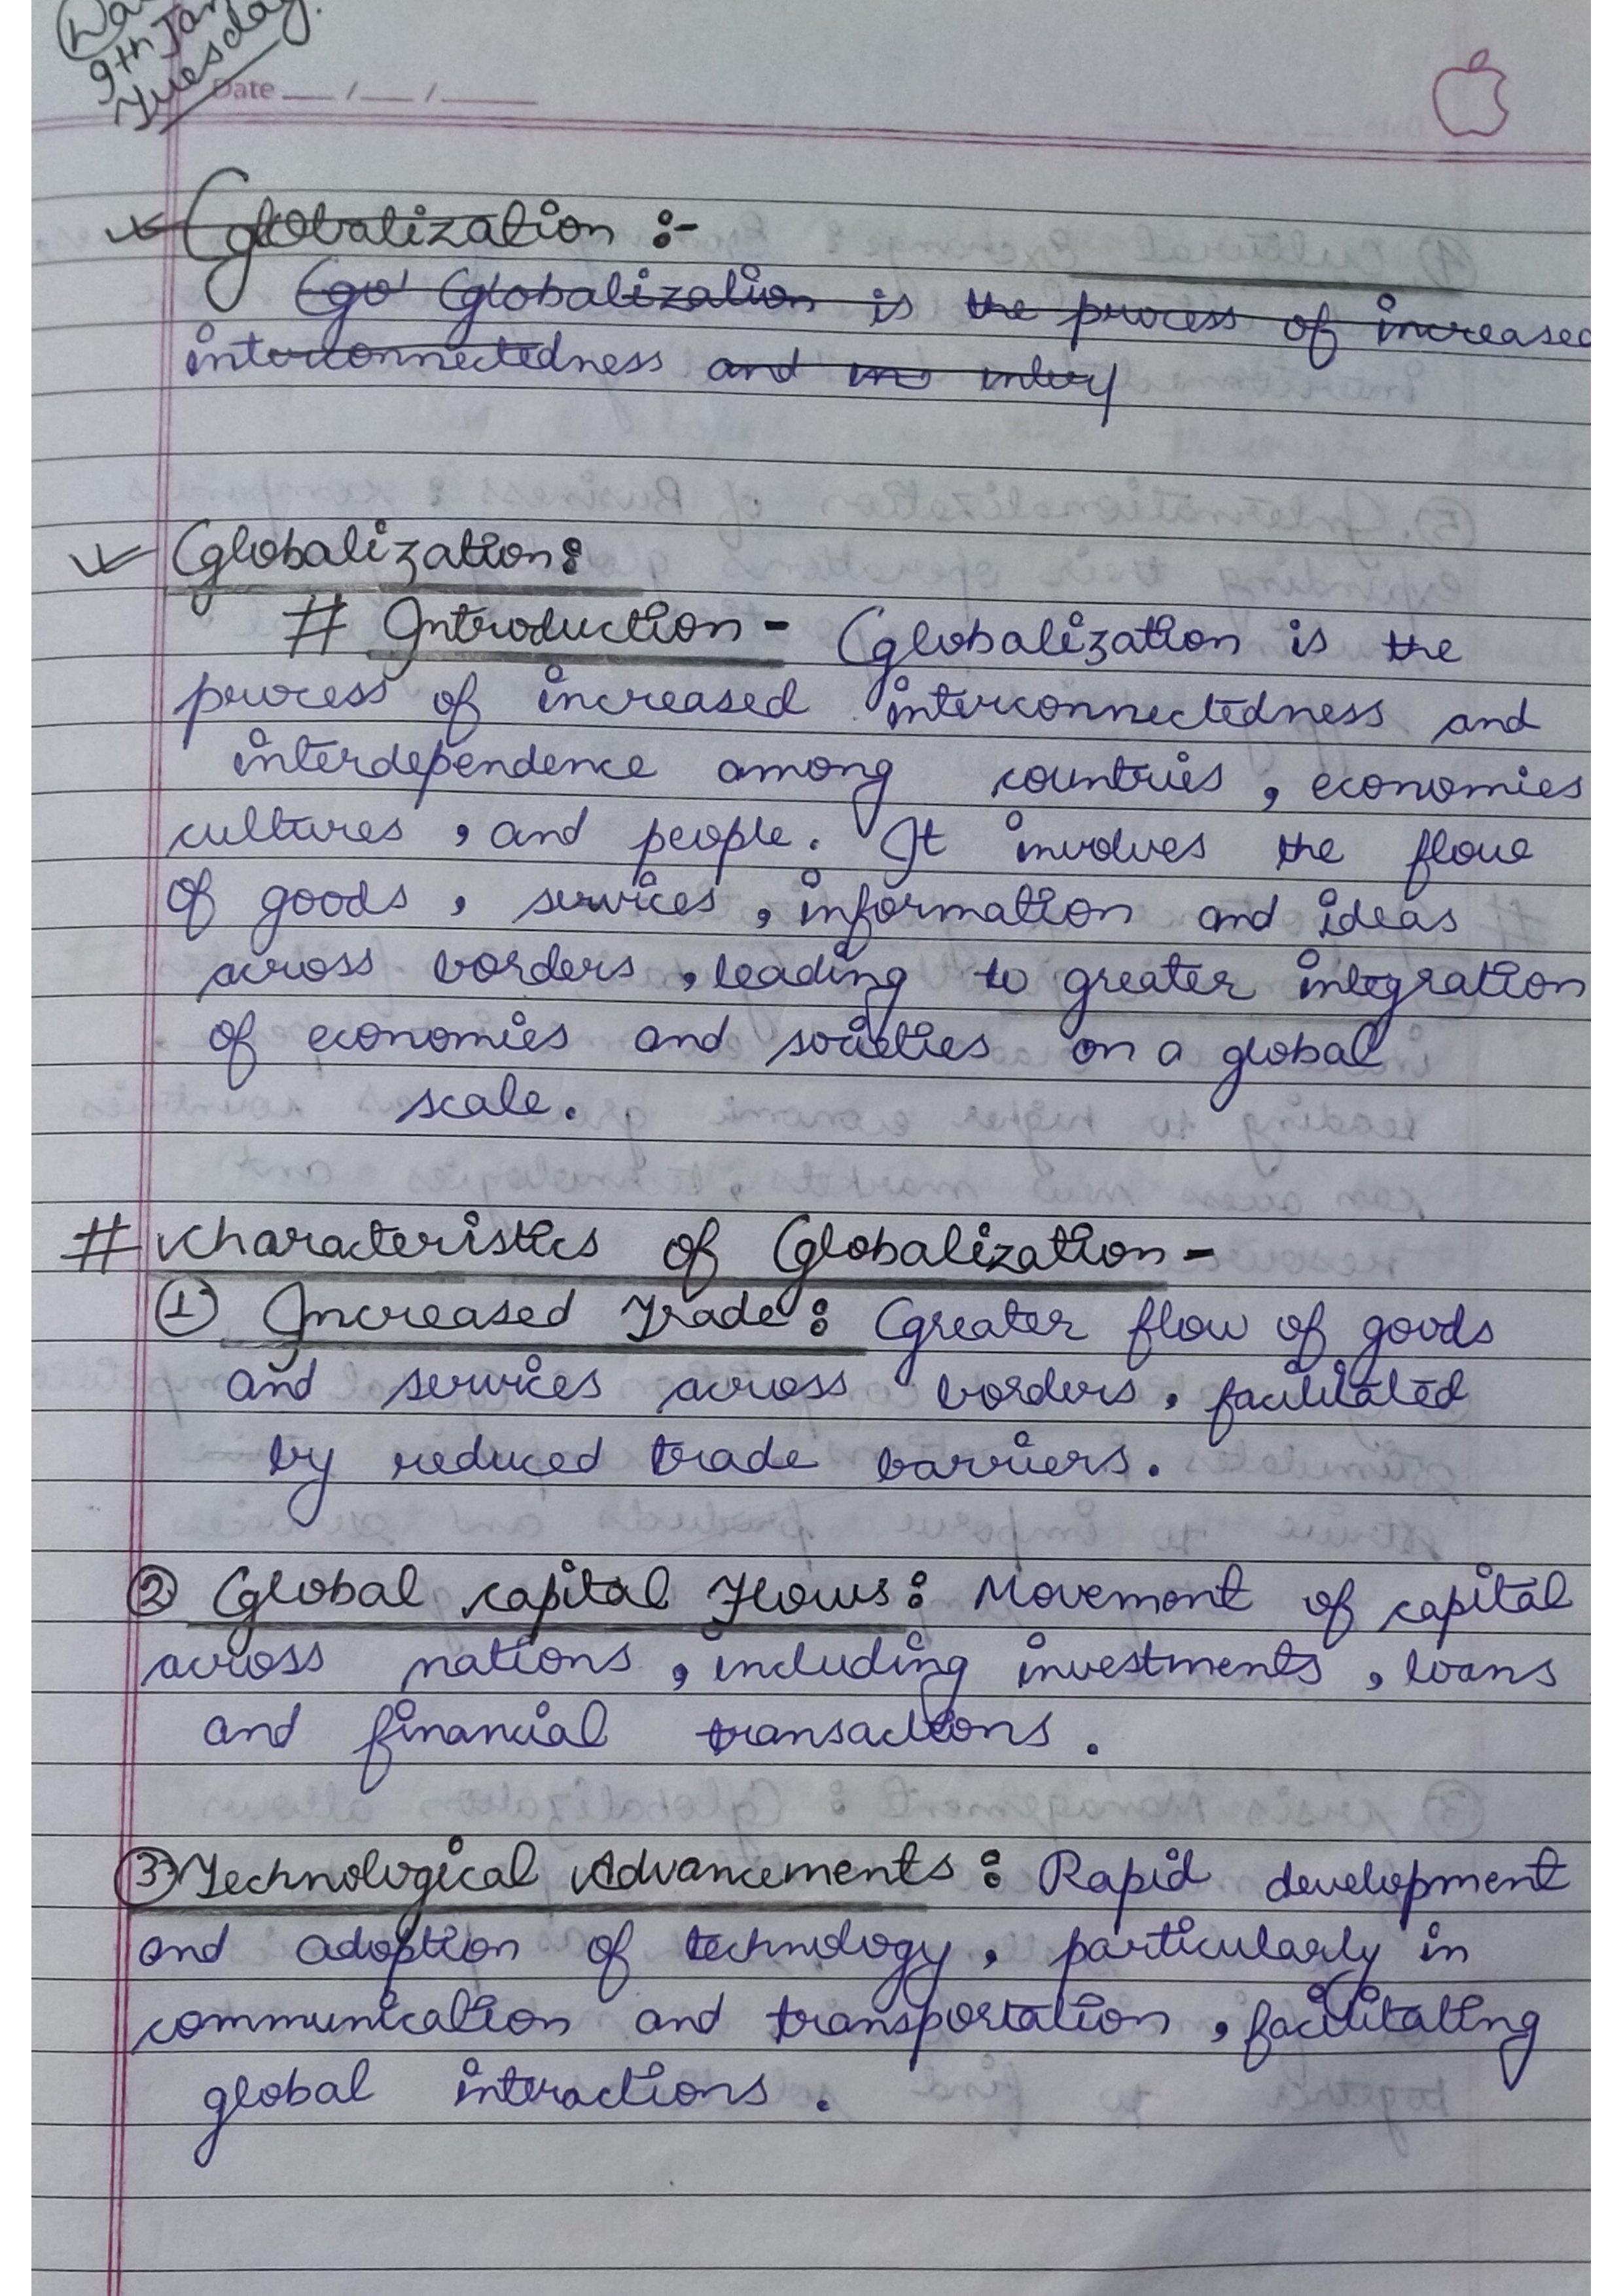 9th Jan
Tuesday.
Date __/__/____
Globalization :-
Go' Globalization is the process of increased
interconnectedness and ins intery
Globalization:
# Introduction - Globalization is the
process of increased interconnectedness and
interdependence among countries, economies
cultures, and people. It involves the flow
of goods, services, information and ideas
across borders, leading to greater integration
of economies and societies on a global
scale.
# Characteristics of Globalization -
① Increased Trade: Greater flow of goods
and services across borders, facilitated
by reduced trade barriers.
② Global Capital Flows: Movement of capital
across nations, including investments, loans
and financial transactions.
③ Technological Advancements: Rapid development
and adoption of technology, particularly in
communication and transportation, facilitating
global interactions.